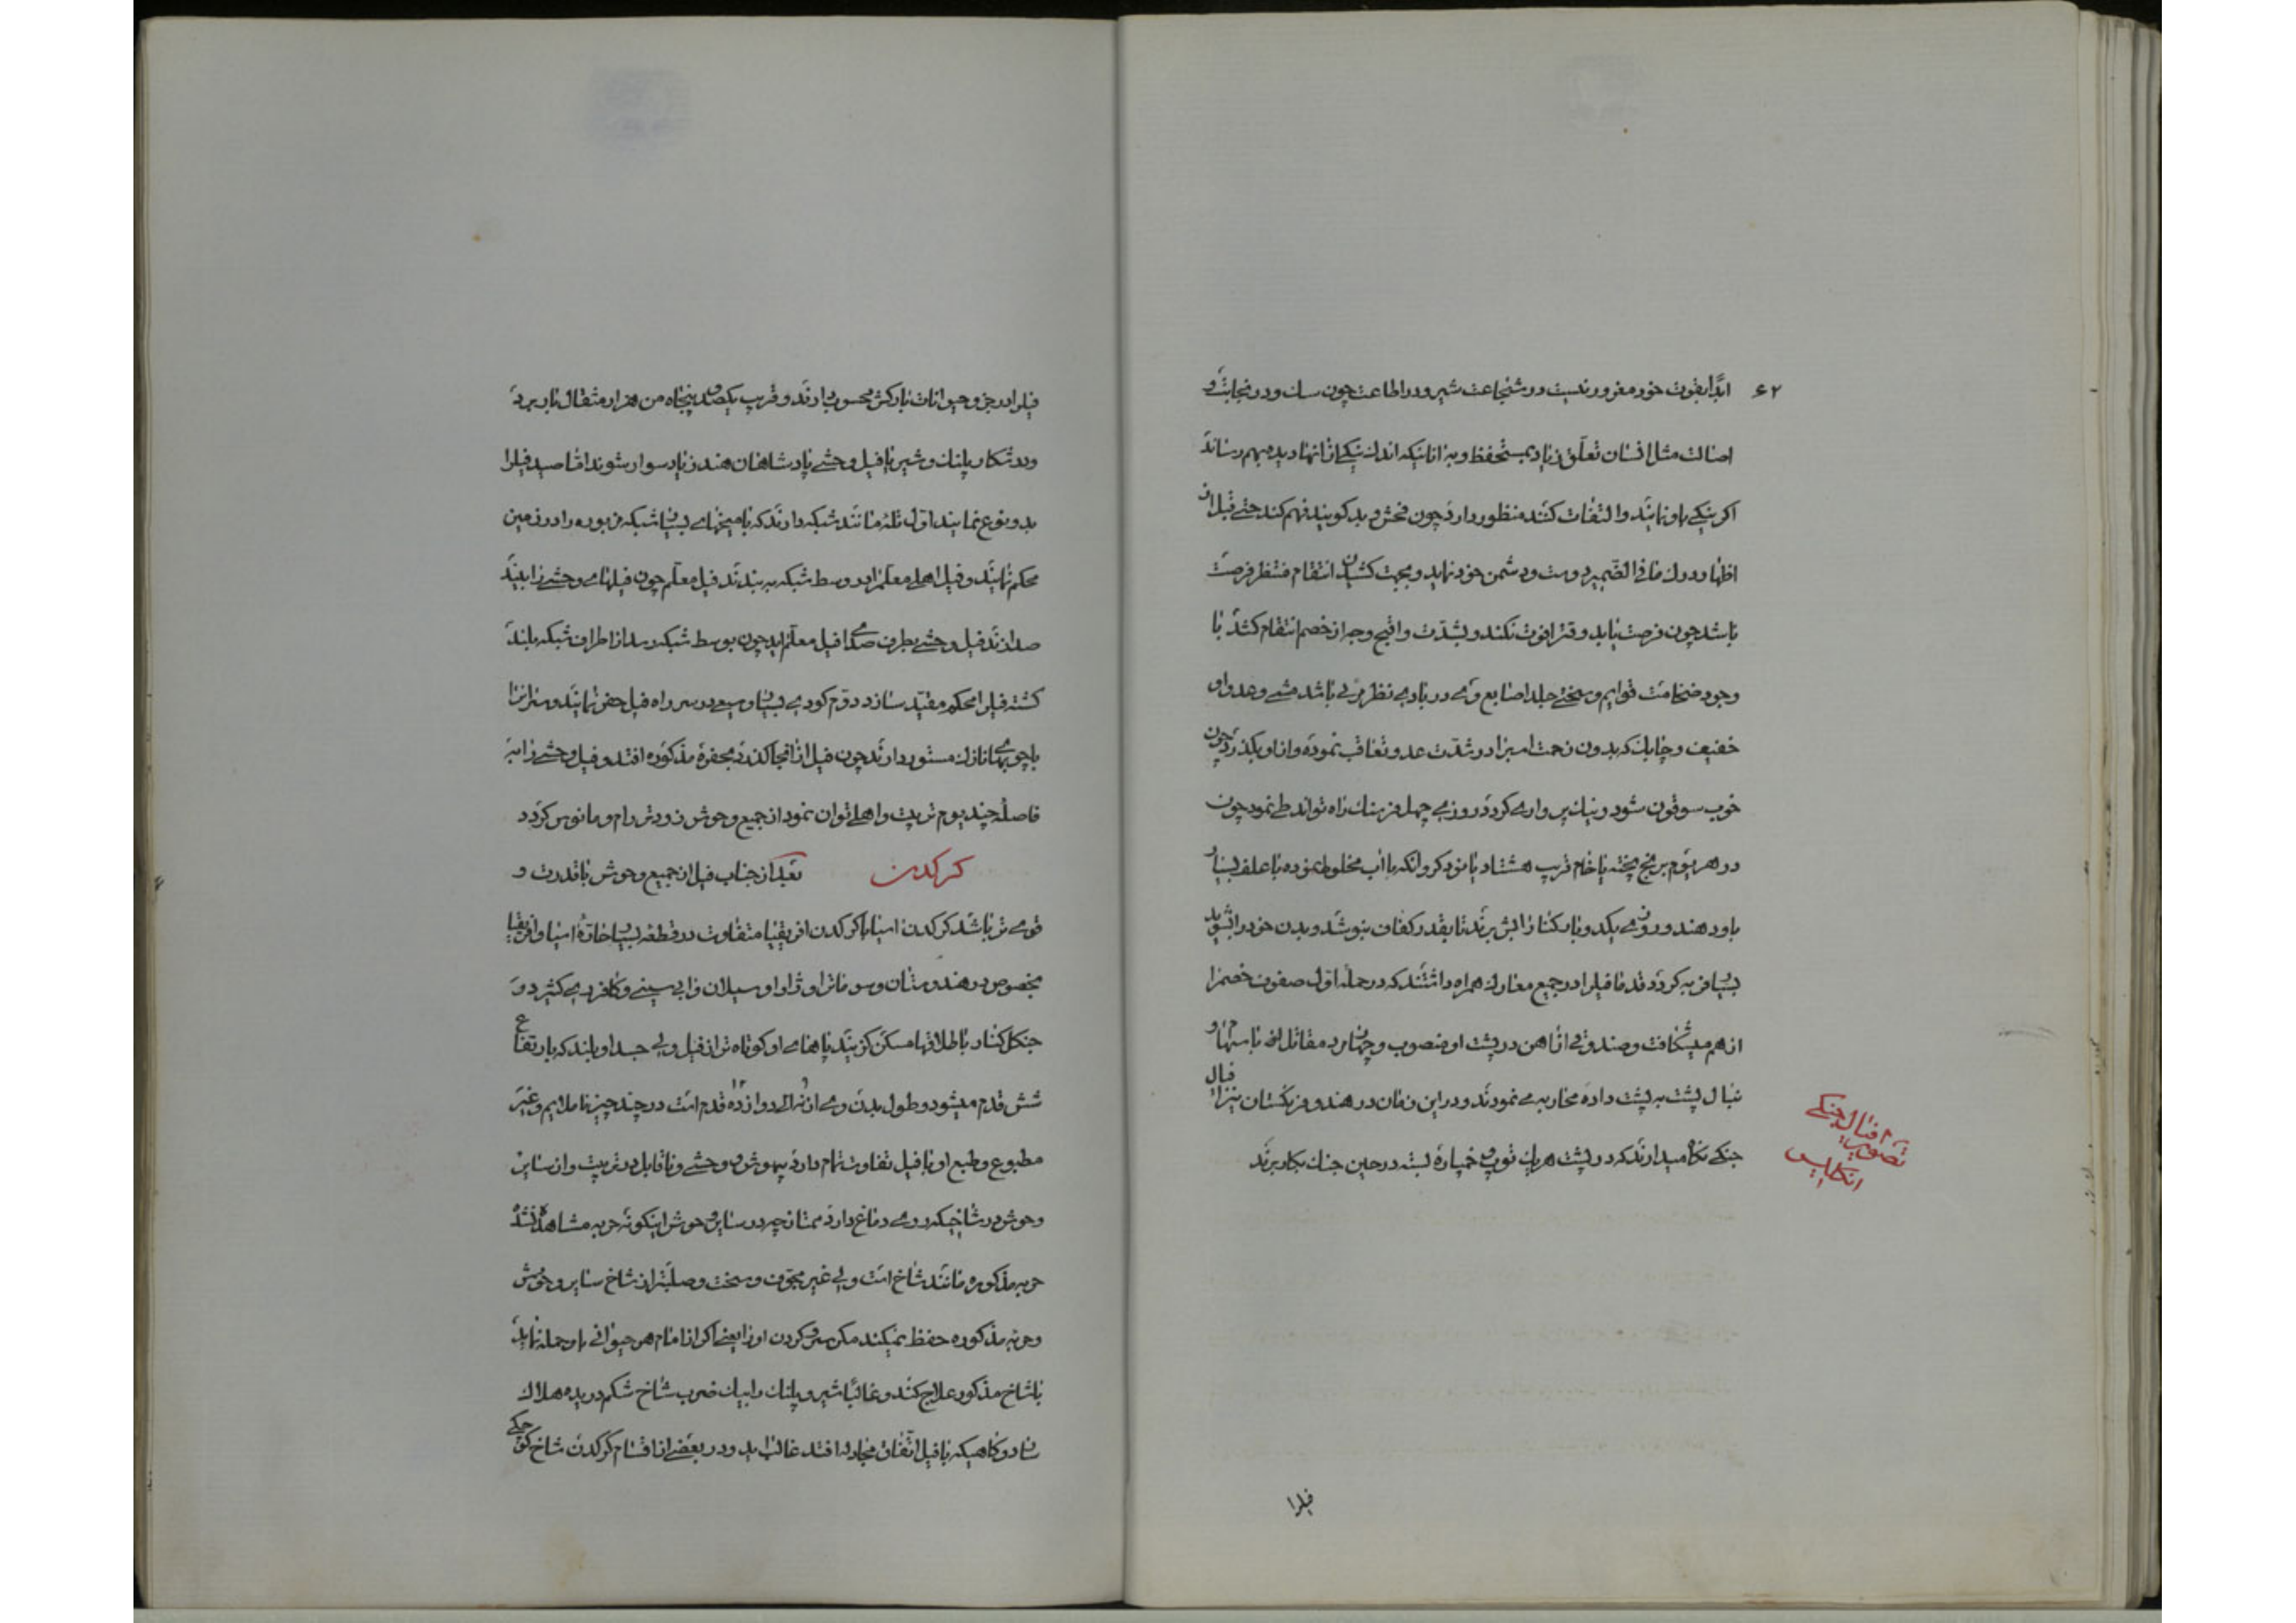 ۶۲
ابدا بقوت خود مغرور نیست در شجاعت شیر و در اطاعت چون سک و در نجابت و
اصالت مثل انسان تعلق زیاد بمستحفظ و به انانیکه اندک نیکی از انها دیده بهم رساند
اکر نیکی باو نمایند و التفات کنند منظور دارد چون فحش و بد کویند فهم کند حتی فیل از
اظهار و درک مافی الضمیر دوست و دشمن خود نماید و بجهت کشیدن انتقام منتظر فرصت
باشد چون فرصت یابد وقترا فوت نکند و بشدت و اقبح وجه از خصم انتقام کشد با
وجود ضخامت قوایم و سختی جلد اصابع وی در بادی نظر مربی باشد مشی وعدو او
خفیف و چابک که بدون زحمت اسبرا در شدت عدو تعاقب نموده و از او بکذرد چون
خوب سوقون شود و نیک پرواری کردد روزی چهل فرسنک راه تواند طی نمود چون
در هر یوم برنج پخته یا خام قریب هشتاد یا نود کروانکه با اب مخلوط نموده با علف بسیار
باو دهند و روزی یکدو بار بکنار ابش برند تا بقدر کفاف بنوشد و بدن خود را بشوید
بسیار فربه کردد قدما فیلرا در جمیع معارک همراه داشتند که در حمله اول صفوف خصمرا
از هم میشکافت و صندوقی از اهن در پشت او منصوب و چهار مرد مقاتل از با سهام و
نبال پشت به پشت داده محاربه می نمودند و در این زمان در هند و فرنکستان نیز افیال
جنکی نکاه میدارند که در پشت هر یک توپ و خمپاره بسته در حین جنک بکار برند
تصویر افیال جنکی
انکلیس
فیلرا
فیلرا در جزو حیوانات بارکش محسوب دارند و قریب یکصد و پنجاه من هزار مثقال بار برد
و در شکار پلنک و شیر با فیل وحشی پادشاهان هند زیاد سوار شوند اما صید فیلرا
بدو نوع نمایند اول تله مانند شبکه دارند که با میخهای بسیار شبکه مزبوره را در زمین
محکم نمایند و فیل اهلی معلمرا در وسط شبکه به بندند فیل معلم چون فیلهای وحشی را بیند
صدا زند فیل وحشی بطرف صدای فیل معلم اید چون بوسط شبکه رسد از اطراف شبکه بلند
کشته فیلرا محکم مقید سازد دوم کودی بسیار وسیع در سر راه فیل حفر نمایند و سر انرا
با چوبهای نازک مستور دارند چون فیل از انجا کذرد بحفره مذکوره افتد و فیل وحشی را به
فاصله چند یوم تربیت و اهلی توان نمود از جمیع وحوش زودتر رام و مانوس کردد
کرکدن بعد از جناب فیل از جمیع وحوش با قدرت و
قوی تر باشد کرکدن اسیا با کرکدن افریقیا متفاوت در قطعه بسیار حاره اسیا و افریقیا
بخصوص در هندوستان و سوماترا و ژاوا و سیلان و ابی سینی و کافرری کثیر و در
جنکل کنار باطلاقها مسکن کزیند پاهای او کوتاه تر از فیل ولی جسد او بلند که بارتفاع
شش قدم میشود و طول بدن وی از نه الی دوازده قدم است در چند چیز ناملایم و غیر
مطبوع و طبع او با فیل تفاوت تمام دارد بیهوش و وحشی و ناقابل در تربیت و از سایر
وحوش در شاخیکه روی دماغ دارد ممتاز چه در سایر وحوش اینکونه حربه مشاهده نشده
حربه مذکوره مانند شاخ است ولی غیر مجوف و سخت و صلبتر از شاخ سایر وحوش
و حربه مذکوره حفظ نمیکند مکر سر و کردن او را یعنی اکر از امام هر حیوانی باو حمله نماید
با شاخ مذکور علاج کند و غالبا شیر و پلنک را بیک ضرب شاخ شکم دریده هلاک
سازد و کاهیکه با فیل اتفاق مجادله افتد غالب اید و در بعضی از اقسام کرکدن شاخ کوچکی